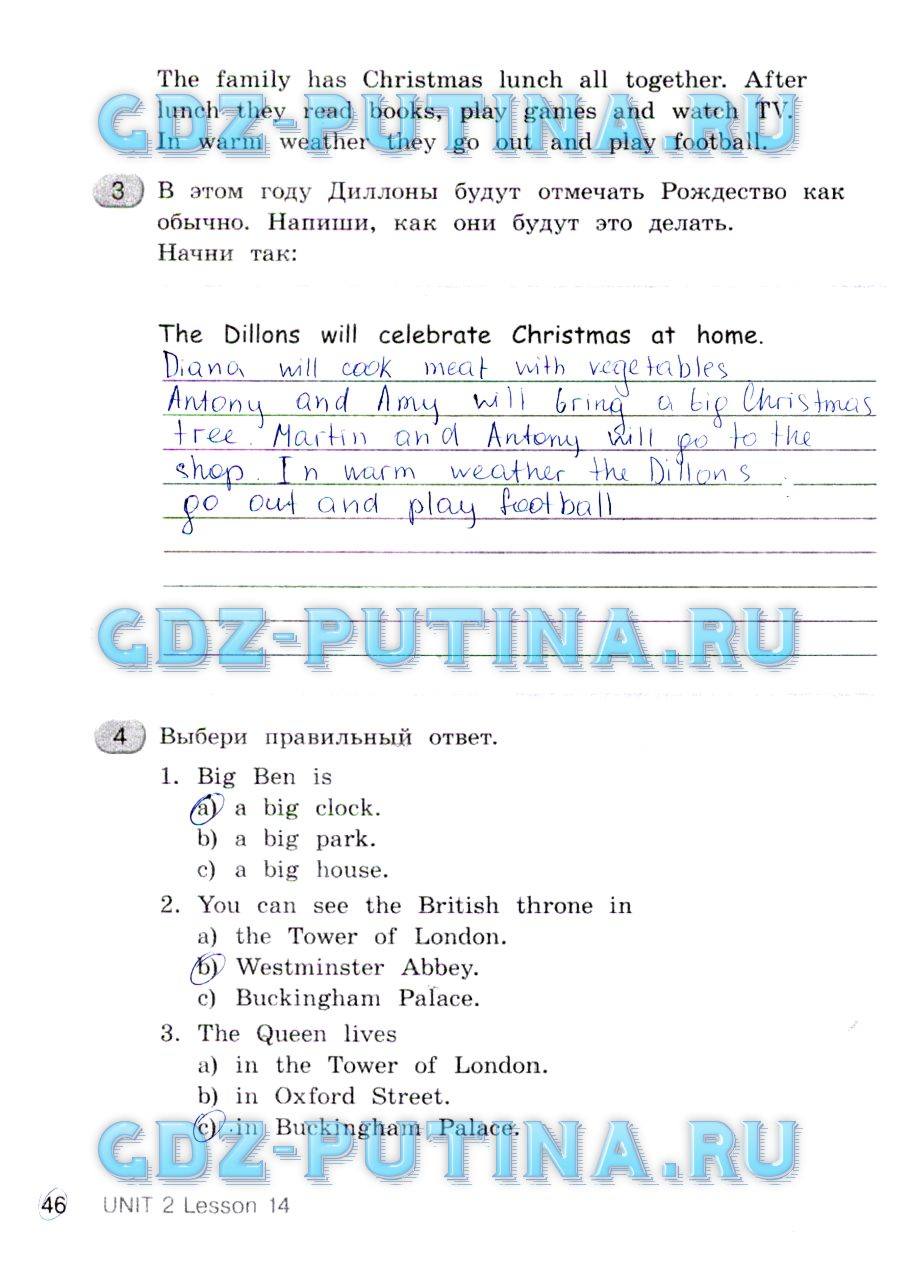 The family has Christmas lunch all together. After
lunch they read books, play games and watch TV.
GDZ-PUTINA.RU
In warm weather they go out and play football.
3 В этом году Диллоны будут отмечать Рождество как
обычно. Напиши, как они будут это делать.
Начни так:
The Dillons will celebrate Christmas at home.
Diana will cook meat with vegetables
Antony and Amy will bring a big Christmas
tree. Martin and Antony will go to the
shop. In warm weather the Dillons
go out and play football
GDZ-PUTINA.RU
4 Выбери правильный ответ.
1. Big Ben is
a) a big clock.
b) a big park.
c) a big house.
2. You can see the British throne in
a) the Tower of London.
b) Westminster Abbey.
c) Buckingham Palace.
3. The Queen lives
a) in the Tower of London.
b) in Oxford Street.
c) in Buckingham Palace.
GDZ-PUTINA.RU
46 UNIT 2 Lesson 14